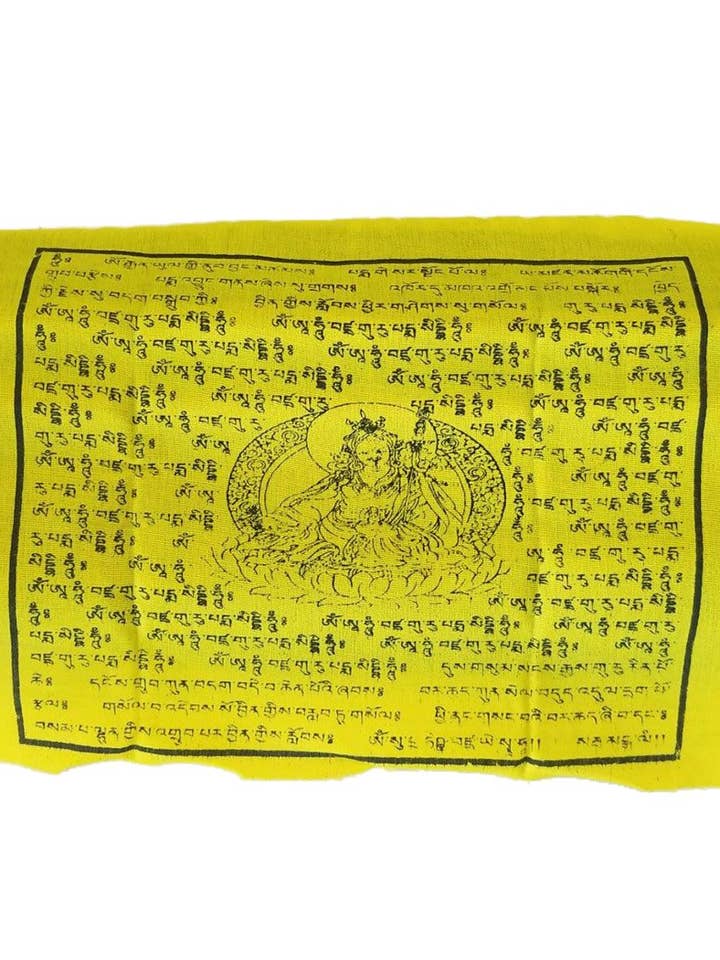 ཧཱུྃ༔ ཨོཾ་རྒྱན་ཡུལ་གྱི་ནུབ་བྱང་མཚམས༔ པདྨ་གེ་སར་སྡོང་པོ་ལ༔ ཡ་མཚན་མཆོག་གི་དངོས
གྲུབ་བརྙེས༔ པདྨ་འབྱུང་གནས་ཞེས་སུ་གྲགས༔ འཁོར་དུ་མཁའ་འགྲོ་མང་པོས་བསྐོར༔ ཁྱེད
ཀྱི་རྗེས་སུ་བདག་བསྒྲུབ་ཀྱི༔ བྱིན་གྱིས་རློབས་ཕྱིར་གཤེགས་སུ་གསོལ༔ གུ་རུ་པདྨ་སིདྡྷི་ཧཱུྃ༔
ཨོཾ་ཨཱ་ཧཱུྃ་བཛྲ་གུ་རུ་པདྨ་སིདྡྷི་ཧཱུྃ༔ ཨོཾ་ཨཱ་ཧཱུྃ་བཛྲ་གུ་རུ་པདྨ་སིདྡྷི་ཧཱུྃ༔ ཨོཾ་ཨཱ་ཧཱུྃ་བཛྲ་གུ་རུ་པདྨ་སིདྡྷི
ཧཱུྃ༔ ཨོཾ་ཨཱ་ཧཱུྃ་བཛྲ་གུ་རུ་པདྨ་སིདྡྷི་ཧཱུྃ༔ ཨོཾ་ཨཱ་ཧཱུྃ་བཛྲ་གུ་རུ་པདྨ་སིདྡྷི་ཧཱུྃ༔ ཨོཾ་ཨཱ་ཧཱུྃ་བཛྲ་གུ་རུ
པདྨ་སིདྡྷི་ཧཱུྃ༔ ཨོཾ་ཨཱ་ཧཱུྃ་བཛྲ་གུ་རུ་པདྨ་སིདྡྷི་ཧཱུྃ༔ ཨོཾ་ཨཱ་ཧཱུྃ་བཛྲ་གུ་རུ་པདྨ་སིདྡྷི་ཧཱུྃ༔ ཨོཾ་ཨཱ་ཧཱུྃ
བཛྲ་གུ་རུ་པདྨ་སིདྡྷི་ཧཱུྃ༔ ཨོཾ་ཨཱ་ཧཱུྃ་བཛྲ་གུ་རུ་ པདྨ་སིདྡྷི་ཧཱུྃ༔ ཨོཾ་ཨཱ་ཧཱུྃ་བཛྲ་གུ་རུ་པདྨ
སིདྡྷི་ཧཱུྃ༔ ཨོཾ་ཨཱ་ཧཱུྃ་བཛྲ་གུ་རུ་ པདྨ་སིདྡྷི་ཧཱུྃ༔ ཨོཾ་ཨཱ་ཧཱུྃ་བཛྲ
གུ་རུ་པདྨ་སིདྡྷི་ཧཱུྃ༔ ཨོཾ་ཨཱ་ ཧཱུྃ་བཛྲ་གུ་རུ་པདྨ་སིདྡྷི་ཧཱུྃ༔
ཨོཾ་ཨཱ་ཧཱུྃ་བཛྲ་གུ་རུ་པདྨ་སིདྡྷི ཧཱུྃ༔ ཨོཾ་ཨཱ་ཧཱུྃ་བཛྲ་གུ
རུ་པདྨ་སིདྡྷི་ཧཱུྃ༔ ཨོཾ་ཨཱ་ བཛྲ་གུ་རུ་པདྨ་སིདྡྷི་ཧཱུྃ༔
ཨོཾ་ཨཱ་ཧཱུྃ་བཛྲ་གུ་རུ་པདྨ་སིདྡྷི ཧཱུྃ༔ ཨོཾ་ཨཱ་ཧཱུྃ་བཛྲ་གུ
རུ་པདྨ་སིདྡྷི་ཧཱུྃ༔ ཨོཾ བཛྲ་གུ་རུ་པདྨ
སིདྡྷི་ཧཱུྃ༔ ཨོཾ་ཨཱ་ཧཱུྃ བཛྲ་གུ་རུ་པདྨ་སིདྡྷི་ཧཱུྃ༔
ཨོཾ་ཨཱ་ཧཱུྃ་བཛྲ་གུ་རུ་པདྨ་སིདྡྷི་ཧཱུྃ༔ ཨོཾ་ཨཱ་ཧཱུྃ་བཛྲ་གུ་རུ་པདྨ་སིདྡྷི
ཧཱུྃ༔ ཨོཾ་ཨཱ་ཧཱུྃ་བཛྲ་གུ་རུ་པདྨ་སིདྡྷི་ཧཱུྃ༔ ཨོཾ་ཨཱ་ཧཱུྃ་བཛྲ་གུ་རུ་པདྨ་སིདྡྷི་ཧཱུྃ༔ ཨོཾ་ཨཱ་ཧཱུྃ་བཛྲ་གུ་རུ
པདྨ་སིདྡྷི་ཧཱུྃ༔ ཨོཾ་ཨཱ་ཧཱུྃ་བཛྲ་གུ་རུ་པདྨ་སིདྡྷི་ཧཱུྃ༔ ཨོཾ་ཨཱ་ཧཱུྃ་བཛྲ་གུ་རུ་པདྨ་སིདྡྷི་ཧཱུྃ༔ ཨོཾ་ཨཱ་ཧཱུྃ
བཛྲ་གུ་རུ་པདྨ་སིདྡྷི་ཧཱུྃ༔ ཨོཾ་ཨཱ་ཧཱུྃ་བཛྲ་གུ་རུ་པདྨ་སིདྡྷི་ཧཱུྃ༔ དུས་གསུམ་སངས་རྒྱས་གུ་རུ་རིན་པོ
ཆེ༔ དངོས་གྲུབ་ཀུན་བདག་བདེ་བ་ཆེན་པོའི་ཞབས༔ བར་ཆད་ཀུན་སེལ་བདུད་འདུལ་དྲག་པོ
རྩལ༔ གསོལ་བ་འདེབས་སོ་བྱིན་གྱིས་བརླབ་ཏུ་གསོལ༔ ཕྱི་ནང་གསང་བའི་བར་ཆད་ཞི་བ་དང༔
བསམ་པ་ལྷུན་གྱིས་འགྲུབ་པར་བྱིན་གྱིས་རློབས༔